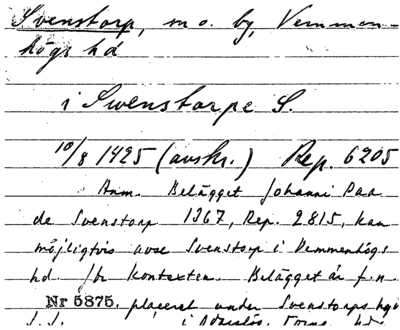 Svenstorp, sn o. by, Vemmen-
högs hd
i Swenstorpe S.
10/8 1425 (avskr.) Rep. 6205
Anm. Belägget Johanni Paa
de Svenstorp 1367, Rep. 2815, kan
möjligtvis avse Svenstorp i Vemmenhögs
hd. Jfr kontexten. Belägget är f.n.
Nr 5875. placerat under Svenstorps
i Torna hd.